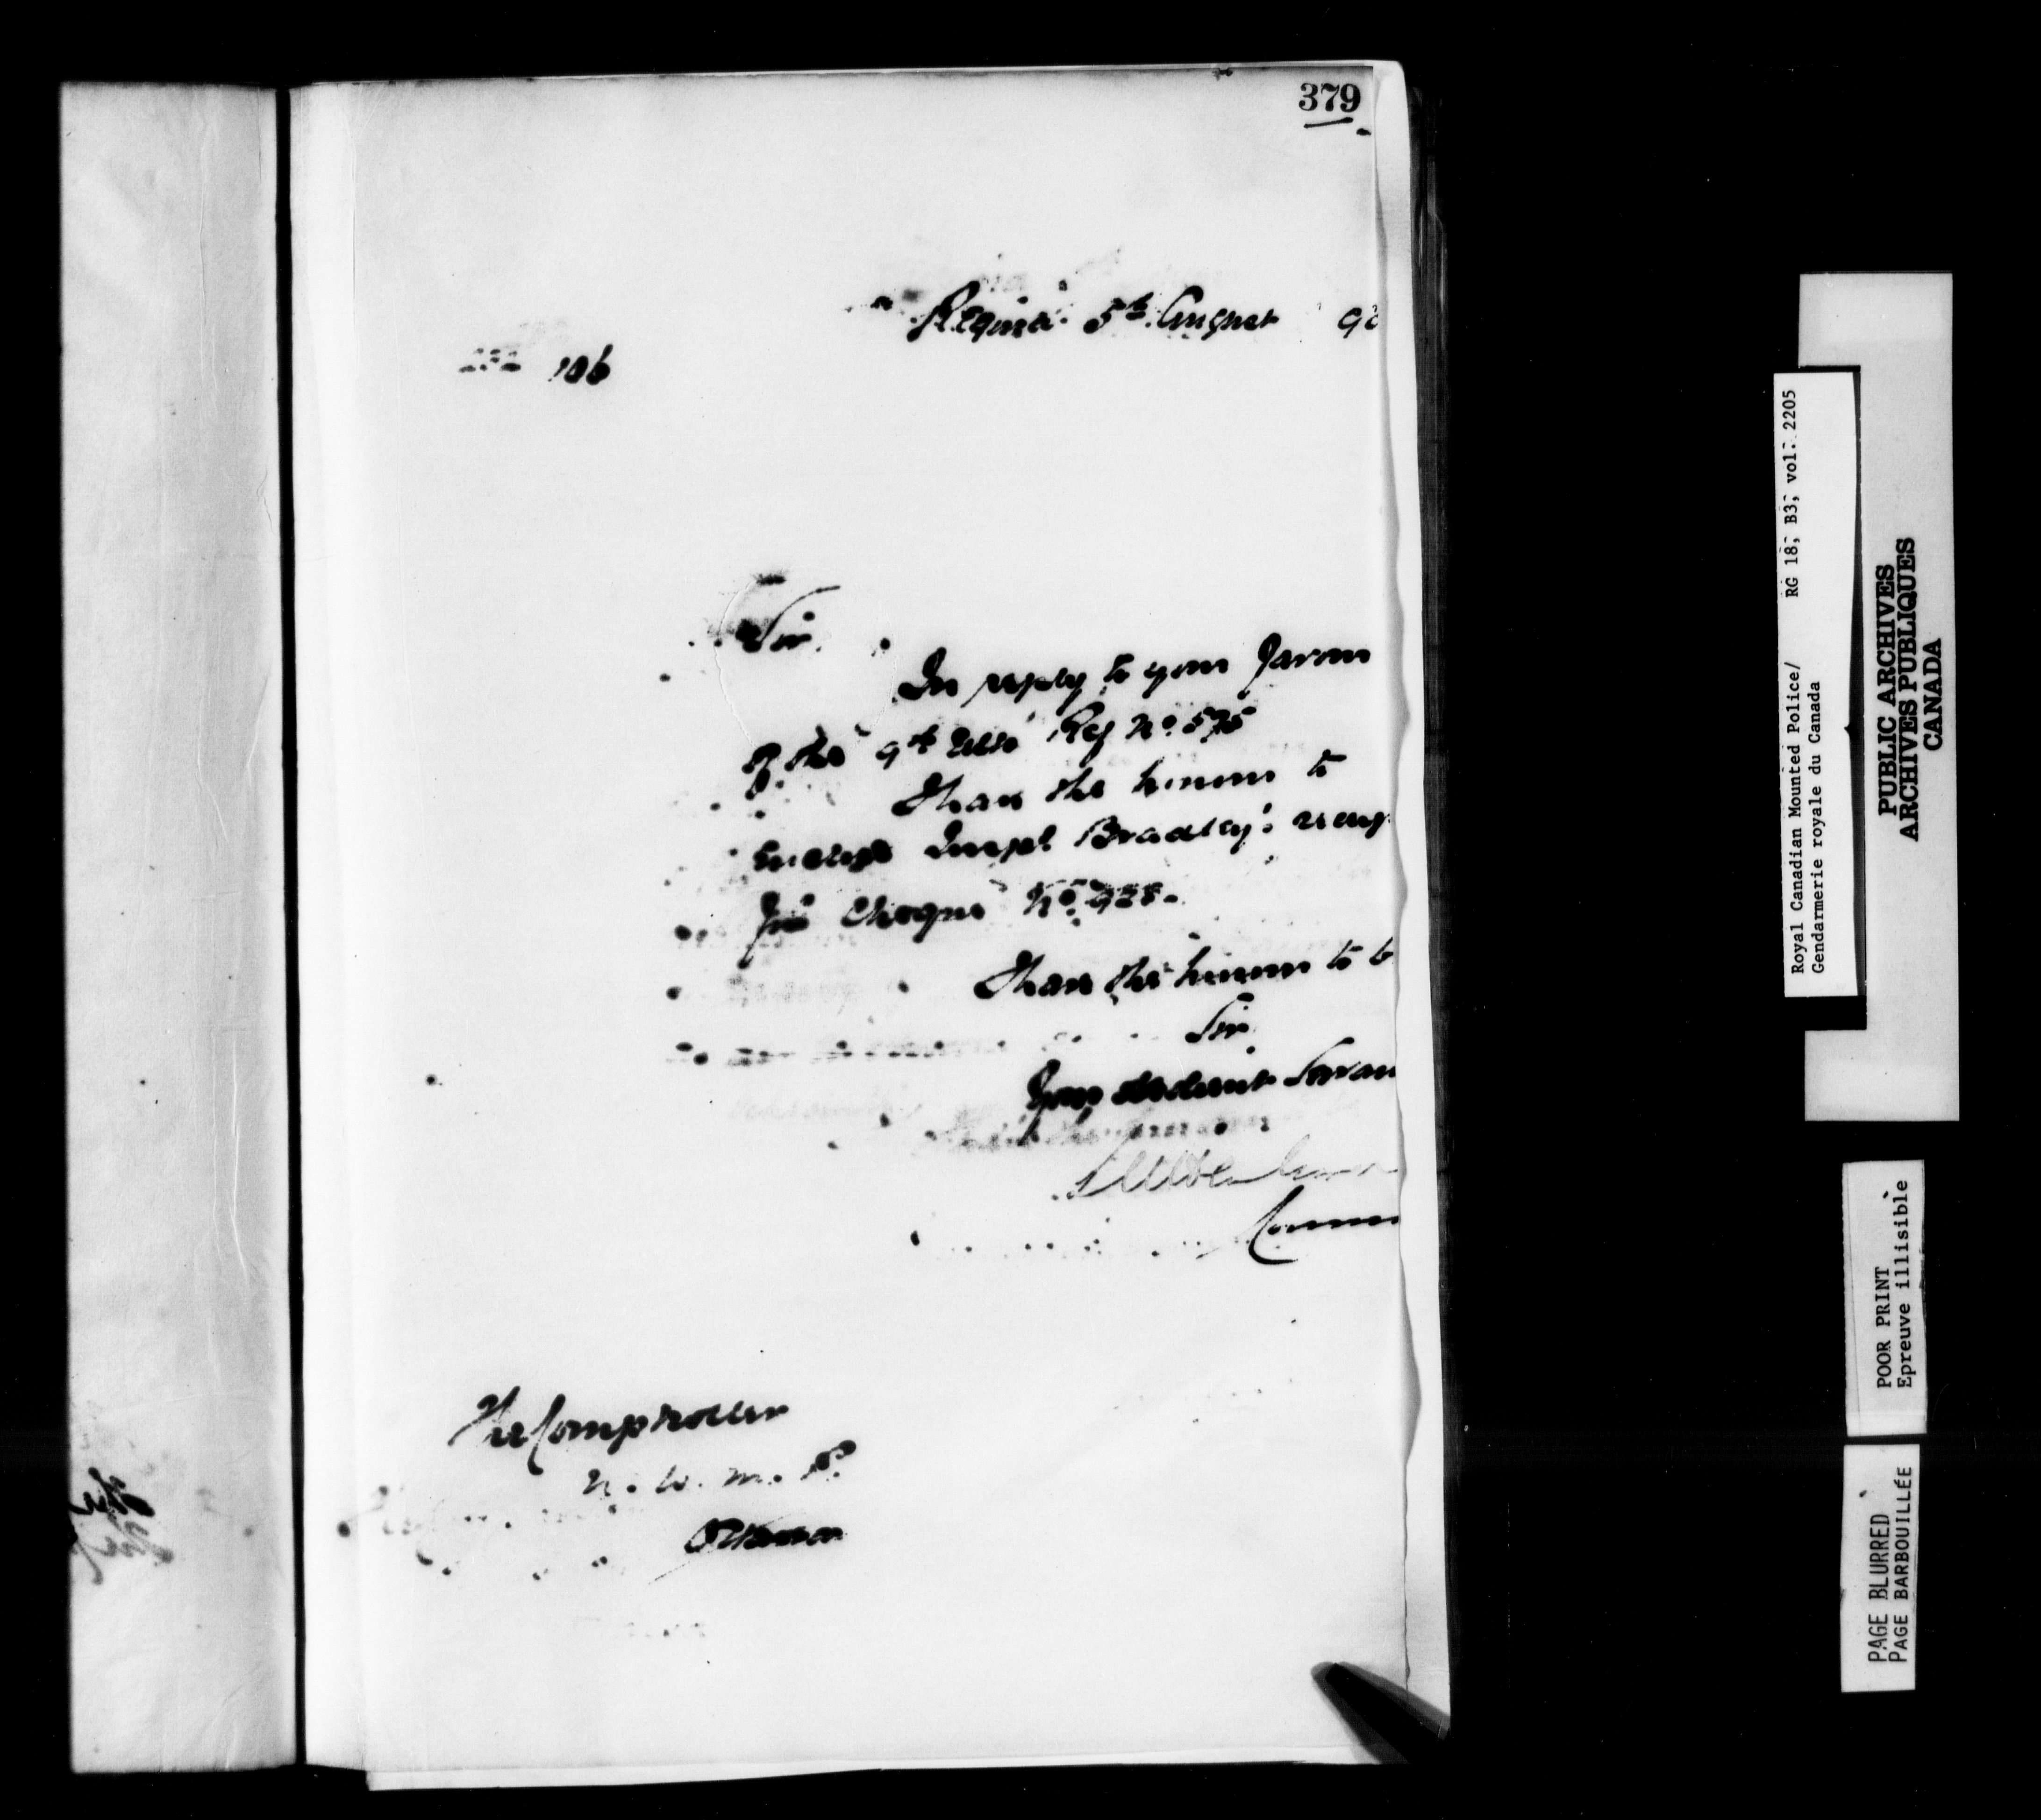 379
Regina 5th August 90
106
Sir.
In reply to your favour
of the 9th Ulto Ref No. 575
I have the honour to
enclose Inspr Bradley's
for Cheque No. 928.
I have the honour to b
Sir
Your obedient Servan
Comm
The Comptroller
N. W. M. P.
Ottawa
Royal Canadian Mounted Police/ RG 18, B3, vol. 2205
Gendarmerie royale du Canada
PUBLIC ARCHIVES
ARCHIVES PUBLIQUES
CANADA
POOR PRINT
Epreuve illisible
PAGE BLURRED
PAGE BARBOUILLÉE